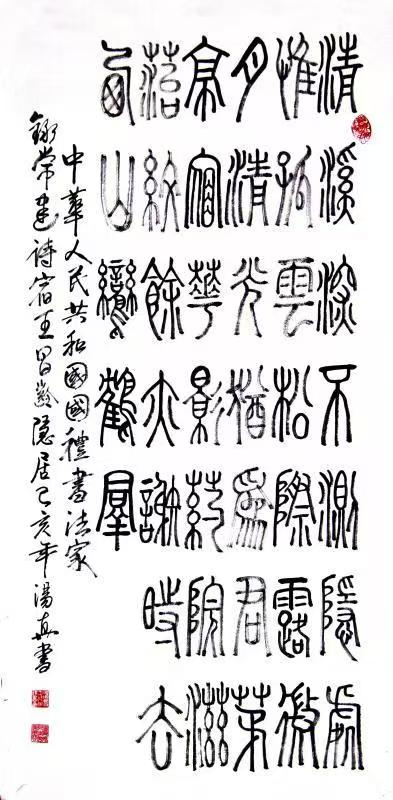 清溪深不測隱處
惟孤雲松際露微
月清光猶為君茅
亭宿華影葯院滋
苔紋餘亦謝時去
西山鸞鶴羣
中華人民共和國國禮書法家
錄常建詩宿王昌齡隱居己亥年湯真書